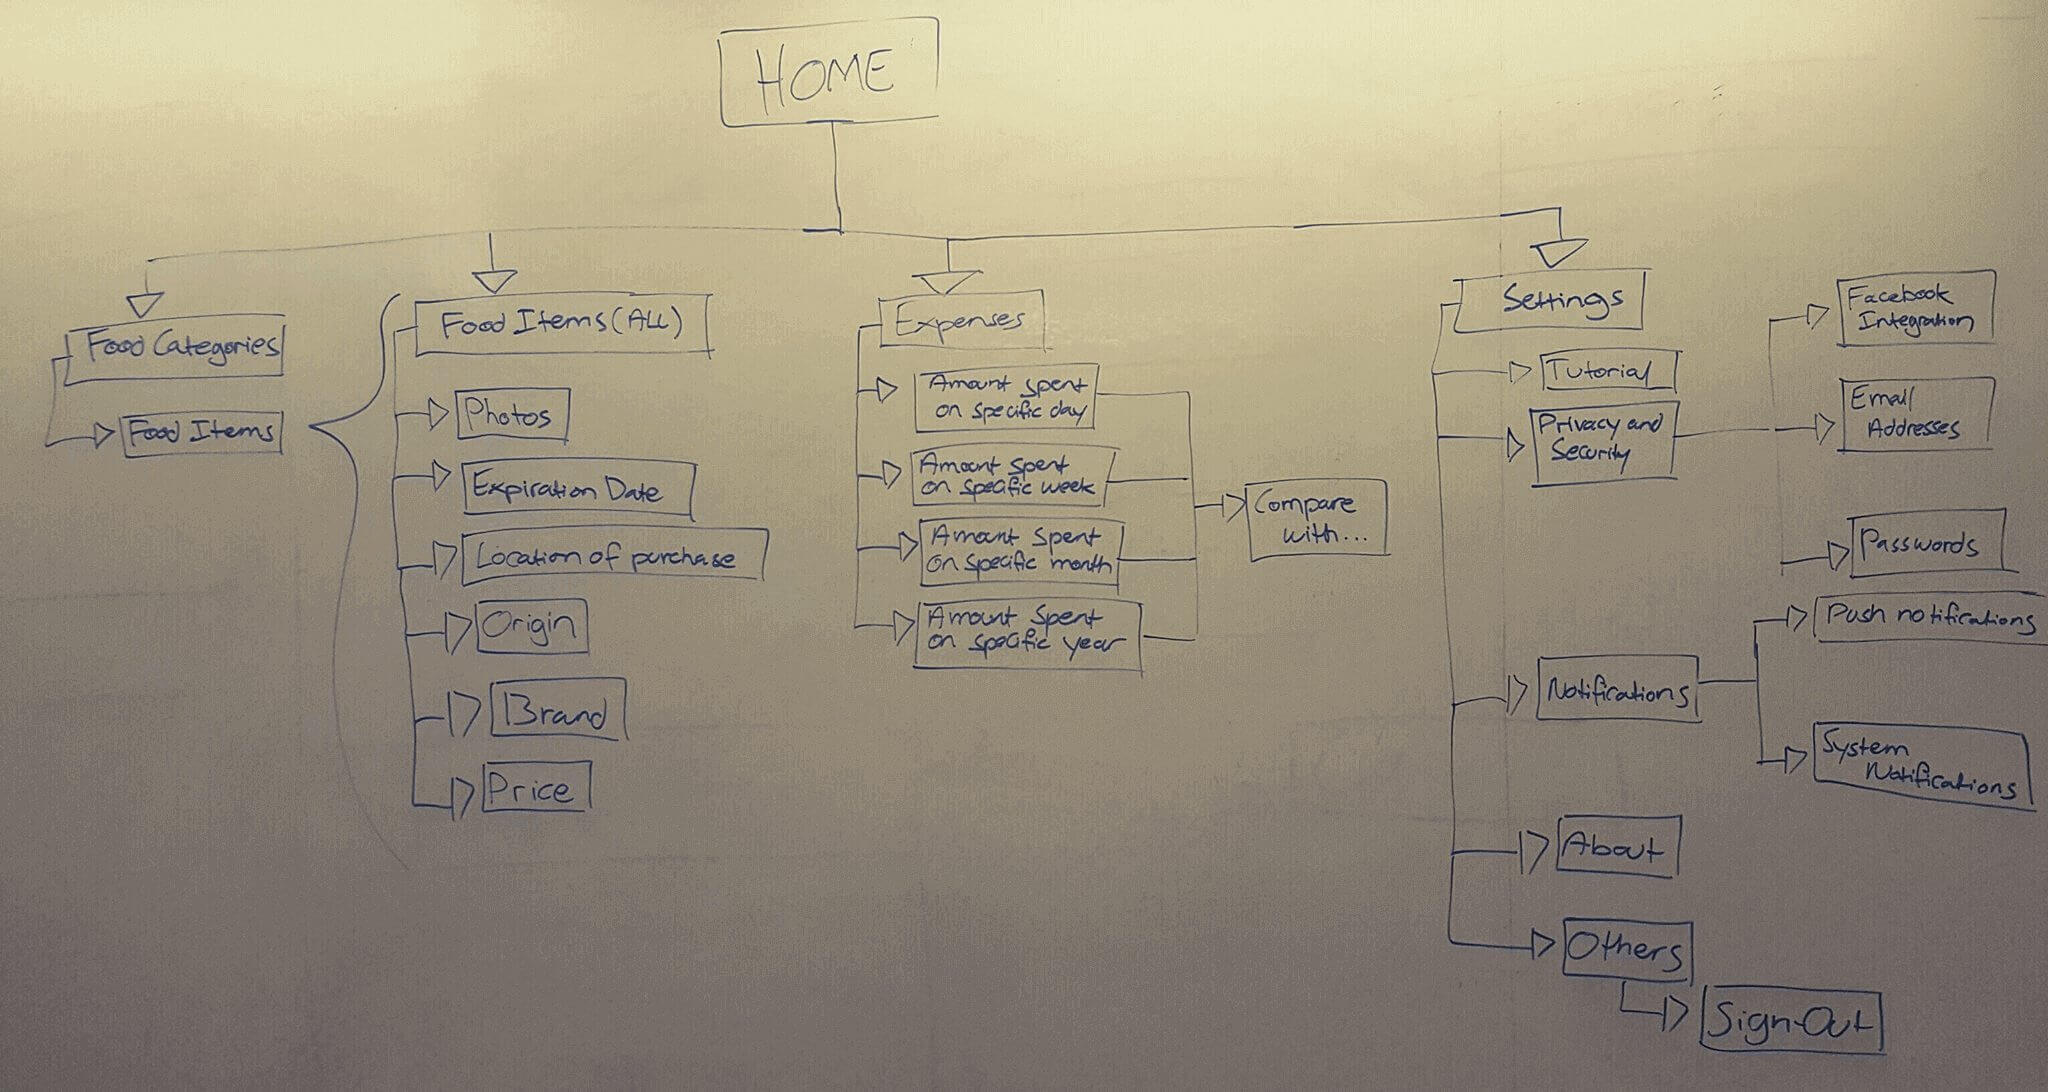 HOME
Food Categories
Food Items
Food Items (ALL)
Photos
Expiration Date
Location of purchase
Origin
Brand
Price
Expenses
Amount spent
on specific day
Amount spent
on specific week
Amount spent
on specific month
Amount Spent
on specific year
Compare
with...
Settings
Tutorial
Privacy and
Security
Facebook
Integration
Email
Addresses
Passwords
Notifications
Push notifications
System
Notifications
About
Others
Sign-Out